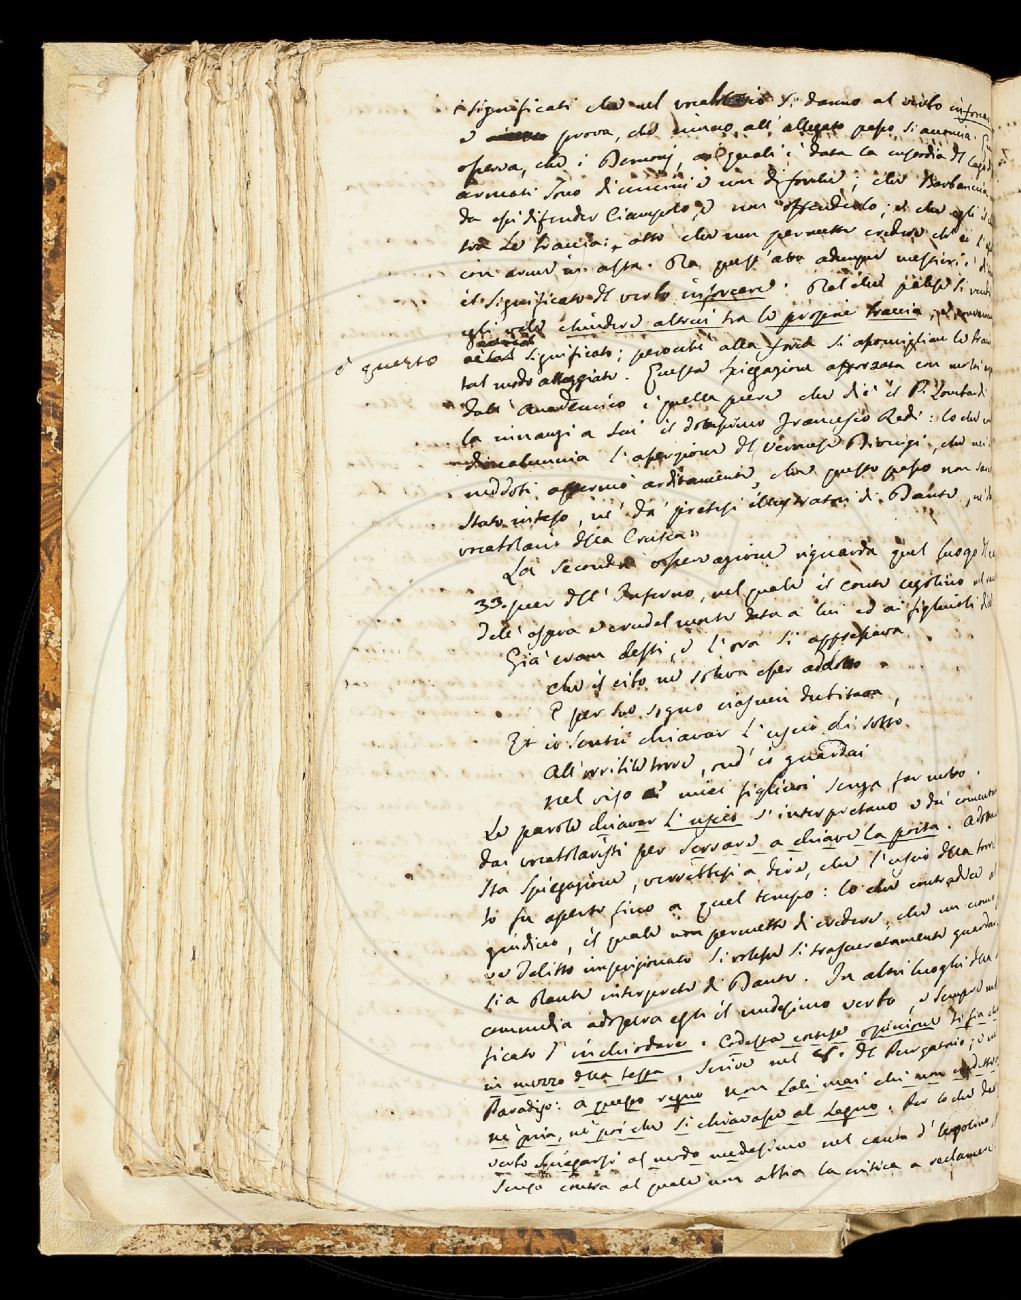 i significati che nel vocabolario si danno al verbo inforcar
e prova, che niuno all' allegato passo si accomoda.
osserva, che i Demonj, ai quali è data la custodia di
armati sono di uncini e non di forche; che Barbariccia
da essi difender Ciampolo, e non offenderlo; e che egli
tra le braccia: atto che non permette credere ch' ei
con arme in asta. Ma quest' altro adunque
il significato del verbo inforcare. Nel che palese si
egli vale chiudere altrui tra le proprie braccia, e
è questo
significato; perocchè alla forca si assomiglian le
tal modo atteggiate. Questa spiegazione afforzata con
dall' Accademico è quella pure che diè il P. Lombardi
la innanzi a lui il dottissimo Francesco Redi: lo che
l' asserzione del Veronese Dionigi, che
neddoti affermò arditamente, che questo passo non
stato inteso, nè da' pretesi illustratori di Dante, nè
vocabolario della Crusca.
La seconda osservazione riguarda quel luogo
33. dell' Inferno, nel quale il conte Ugolino
dell' aspra e crudel morte data a lui ed ai figliuoli
Già eram desti, e l' ora si appressava
che il cibo ne soleva esser addotto
E per suo sogno ciascun dubitava,
Et io sentii chiavar l' uscio di sotto
All' orribile torre, ond' io guardai
nel viso a' miei figliuoi senza far motto.
Le parole chiavar l' uscio s' interpretano e da'
dai vocabolaristi per serrare a chiave la porta.
sta spiegazione, verrebbesi a dire, che l' uscio della torre
to fu aperto fino a quel tempo: lo che contraddice
giudizio, il quale non permette di credere, che un uomo
ve delitto imprigionato si volesse sì trascuratamente
sia Dante interprete di Dante. In altri luoghi della
commedia adopera egli il medesimo verbo, e sempre
ficato d' inchiodare. Codesta cortese opinione ti fia
in mezzo della testa, scrive nel 8.° del Purgatorio; e
Paradiso: a questo regno non salì mai chi non
nè pria, nè poi che si chiavasse al legno. Per lo che
verbo spiegarsi al modo medesimo nel canto d' Ugolino,
senso contra al quale non abbia la critica a